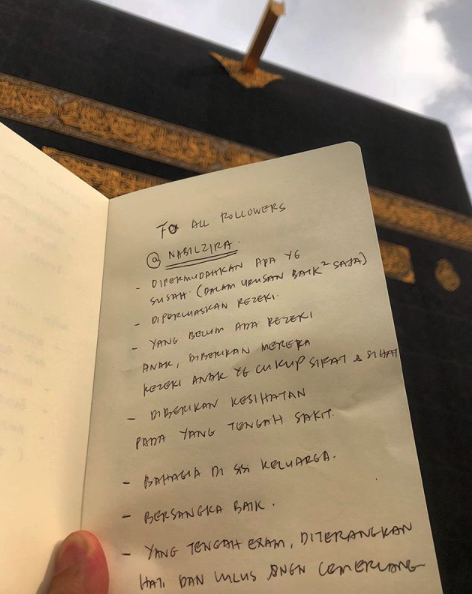 TO ALL FOLLOWERS
@ NABILZIRA.
- DIPERMUDAHKAN APA YG
SUSAH. (DALAM URUSAN BAIK² SAJA)
- DIPERLUASKAN REZEKI.
- YANG BELUM ADA REZEKI
ANAK, DIBERIKAN MEREKA
REZEKI ANAK YG CUKUP SIFAT & SIHAT
- DIBERIKAN KESIHATAN
PADA YANG TENGAH SAKIT.
- BAHAGIA DI SISI KELUARGA.
- BERSANGKA BAIK.
- YANG TENGAH EXAM, DITERANGKAN
HATI DAN LULUS DNGN CEMERLANG